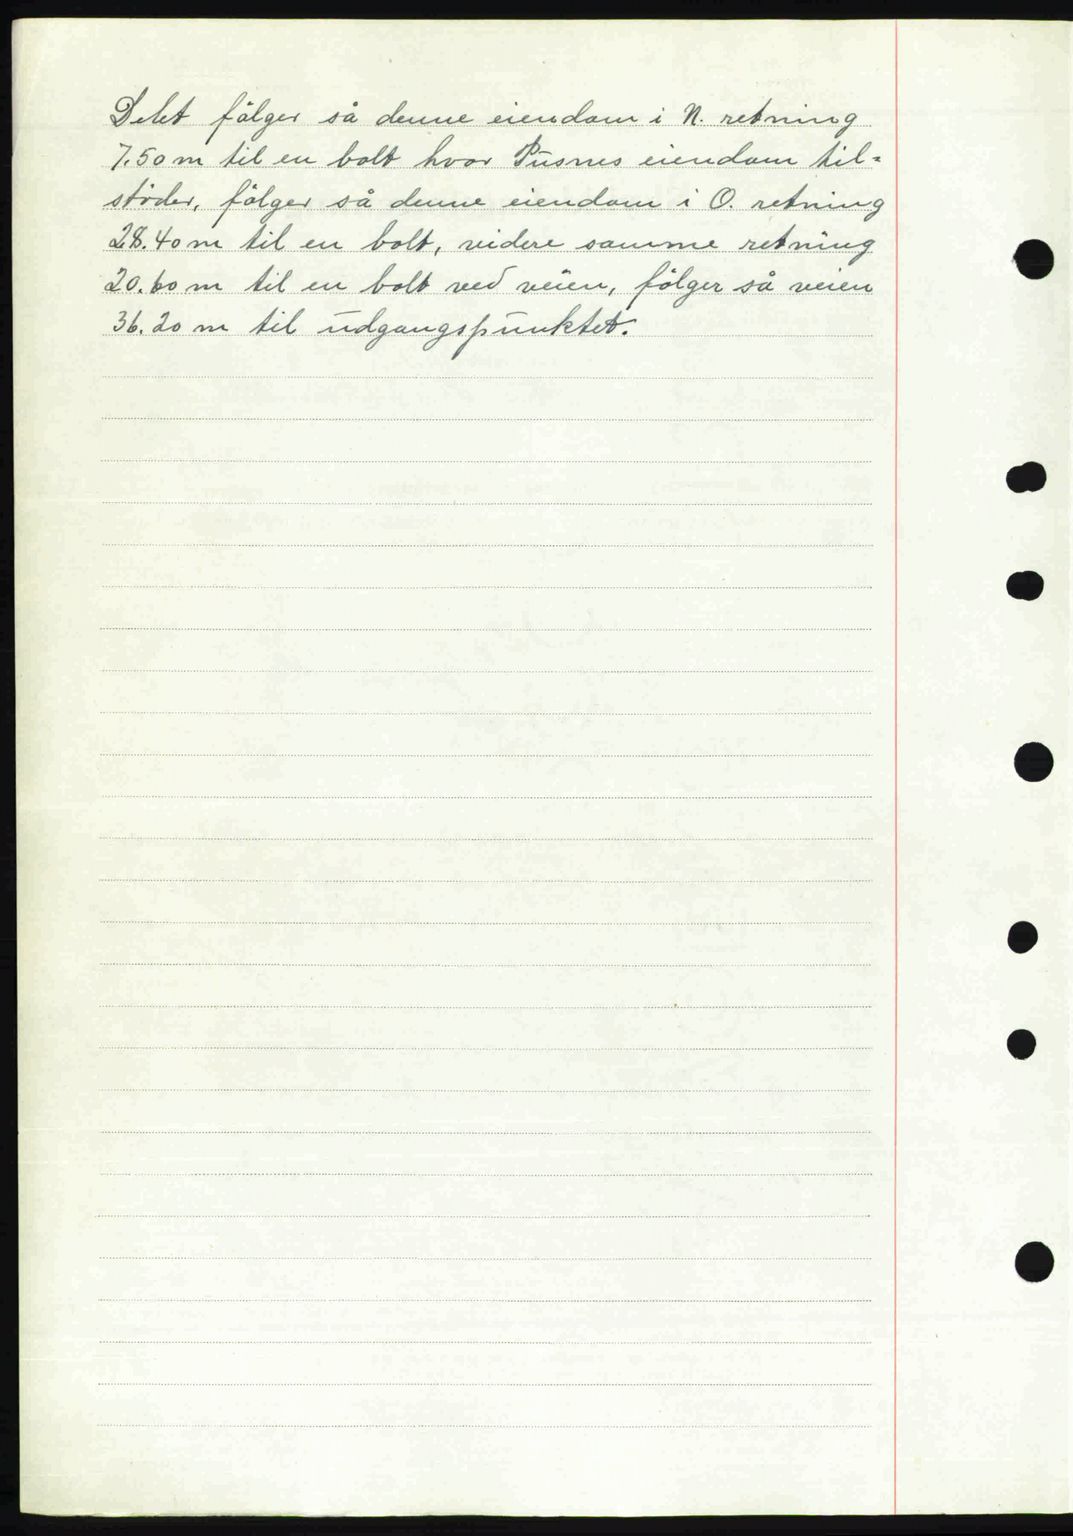 Delet fölger så denne eiendom i N. retning
7.50 m til en bolt hvor Pusnes eiendom til=
störder, fölger så denne eiendom i O. retning
28.40 m til en bolt, videre samme retning
20.60 m til en bolt ved veien, fölger så veien
36.20 m til udgangspunktet.